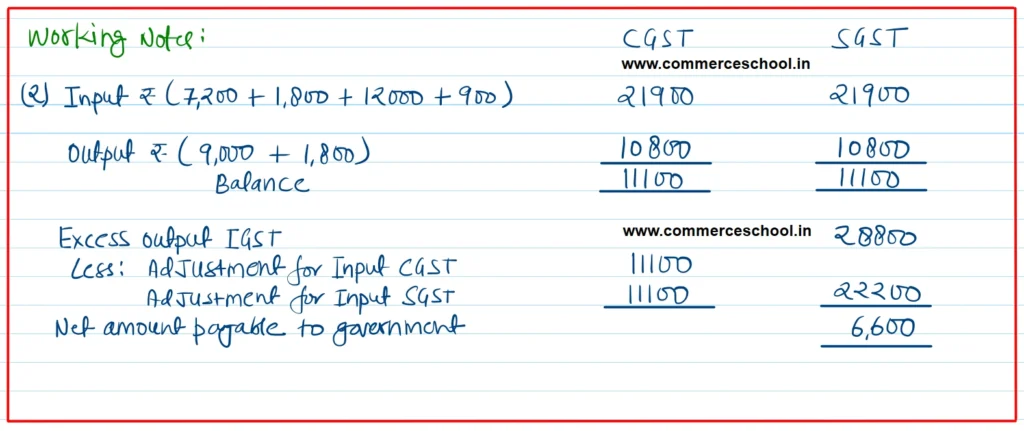 Working Note: CGST SGST
www.commerceschool.in
(2) Input ₹ (7,200 + 1,800 + 12000 + 900) 21900 21900
Output ₹ (9,000 + 1,800) 10800 10800
Balance 11100 11100
Excess output IGST www.commerceschool.in 28800
Less: Adjustment for Input CGST 11100
Adjustment for Input SGST 11100 22200
Net amount payable to government 6,600